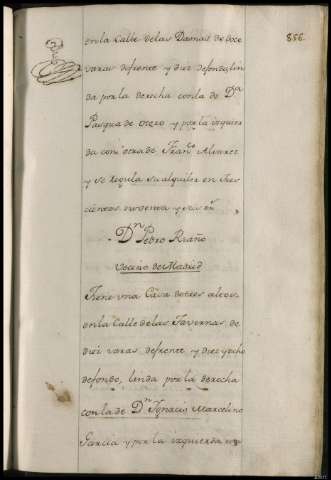 856.
en la Calle de las Damas de doce
varas de frente y diez de fondo, lin
da por la derecha con la de Dª
Pasqua de otero y por la izquier
da con otra de Franº. Alvarez
y se Regula su alquiler en tres
cientos nobenta y r.s vn
Dn Pedro Riaño
Vecino de Madrid
Tiene una Casa de tres altos
en la Calle de las Tavernas de
diez varas de frente y diez y ocho
de fondo, linda por la derecha
con la de Dn Ignacio Marcelino
Garcia y por la izquierda